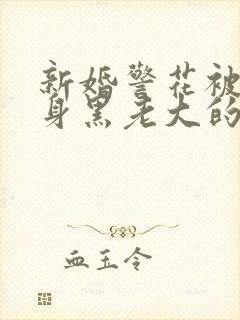 新婚警花被
身黑老大的
血玉令